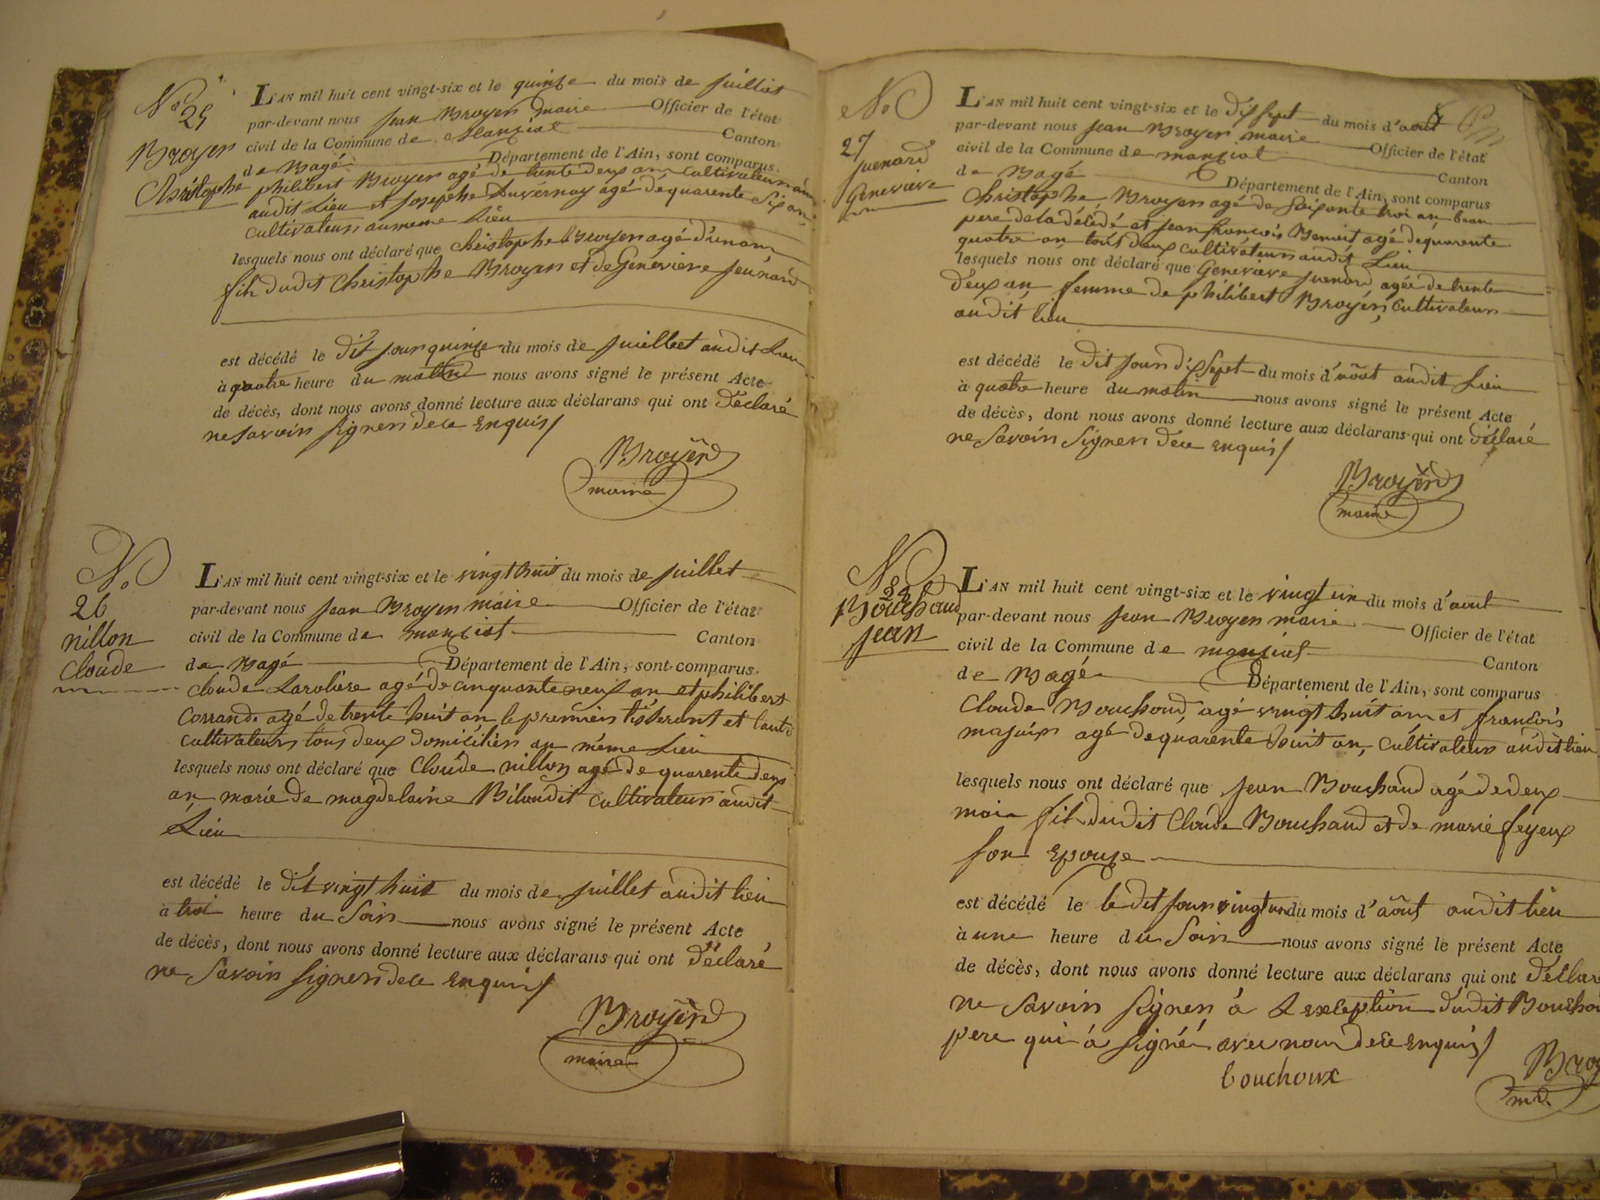 No
25
Broyer
Christophe
L'AN mil huit cent vingt-six et le quinze du mois de juillet
par-devant nous jean Broyer maire Officier de l'état
civil de la Commune de Manziat Canton
de Bagé Département de l'Ain, sont comparus
philibert Broyer agé de trente deux an cultivateur
audit Lieu et josephe Duvernay agé de quarente six an
cultivateur au meme Lieu
lesquels nous ont déclaré que Christophe Broyer agé d'un an
fils dudit Christophe Broyer et de Genevieve Jeunard
est décédé le dit jour quinze du mois de juiellet audit Lieu
à quatre heure du matin nous avons signé le présent Acte
de décès, dont nous avons donné lecture aux déclarans qui ont déclaré
ne savoir signer de ce Enquis
Broyer
maire
No
26
nillon
Claude
L'AN mil huit cent vingt-six et le vingt huit du mois de juillet
par-devant nous jean Broyer maire Officier de l'état
civil de la Commune de manziat Canton
de Bagé Département de l'Ain, sont comparus
Claude Laroliere agé de cinquante neuf an et philibert
Corrand agé de trente huit an le premier tisserant et l'autre
cultivateur tous deux domiciliés au même Lieu
lesquels nous ont déclaré que Claude nillon agé de quarente deux
an marie de magdelaine Bilandit cultivateur audit
Lieu
est décédé le dit vingt huit du mois de juillet audit lieu
à troi heure du Soir nous avons signé le présent Acte
de décès, dont nous avons donné lecture aux déclarans qui ont déclaré
ne savoir signer de ce Enquis
Broyer
maire
No
27
juenard
Genevieve
L'AN mil huit cent vingt-six et le dissept du mois d'aout
par-devant nous jean Broyer maire Officier de l'état
civil de la Commune de manziat Canton
de Bagé Département de l'Ain, sont comparus
Christophe Broyer agé de soixante troi an beau
pere de la dédédé et jean francois Benoit agé de quarente
quatre an tous deux cultivateur audit Lieu
lesquels nous ont déclaré que Genevieve juenard agée de trente
deux an femme de philibert Broyer, cultivateur
audit lieu
est décédé le dit jour dissept du mois d'août audit Lieu
à quatre heure du matin nous avons signé le présent Acte
de décès, dont nous avons donné lecture aux déclarans qui ont déclaré
ne savoir signer de ce enquis
Broyer
maire
No
28
Bouchaud
jean
L'AN mil huit cent vingt-six et le vingt un du mois d'aout
par-devant nous jean Broyer maire Officier de l'état
civil de la Commune de manziat Canton
de Bagé Département de l'Ain, sont comparus
Claude Bouchoud, agé vingt huit an et francois
agé de quarente huit an, cultivateur audit lieu
lesquels nous ont déclaré que jean Bouchaud agé de deux
moi fils dudit Claude Bouchaud et de marie feyeux
son Epouse
est décédé le le dit jour vingt un du mois d'août audit lieu
à une heure du Soir nous avons signé le présent Acte
de décès, dont nous avons donné lecture aux déclarans qui ont déclaré
ne savoir signer à L'exception dudit Bouchou
pere qui à signé avec nous de ce enquis
bouchoux
Broy